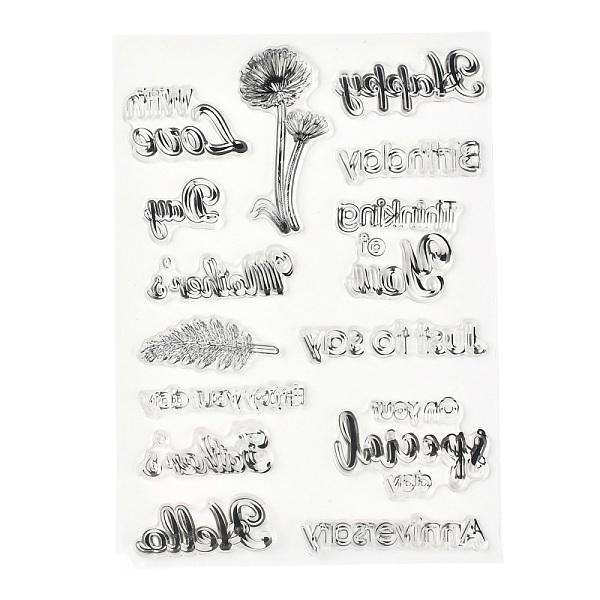 With
Love
Day
Mother's
Enjoy your day
Father's
Hello
Happy
Birthday
Thinking
of
You
Just to say
On your
special
day
Anniversary